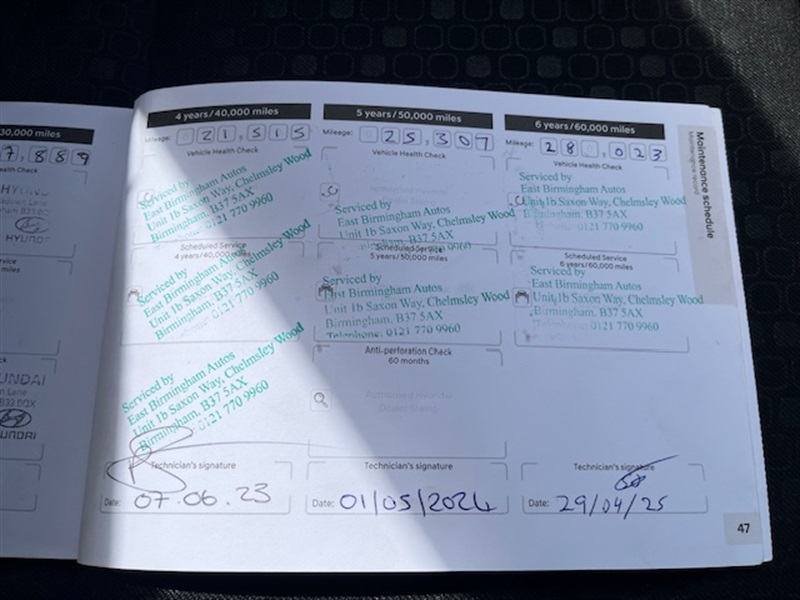 30,000 miles
7,889
HYUNDAI
UNDAI
Lane
B33 0QX
4 years/40,000 miles
Mileage: 21,515
Vehicle Health Check
Serviced by
East Birmingham Autos
Unit 1b Saxon Way, Chelmsley Wood
Birmingham, B37 5AX
0121 770 9960
Scheduled Service
4 years/40,000 miles
Serviced by
East Birmingham Autos
Unit 1b Saxon Way, Chelmsley Wood
Birmingham, B37 5AX
0121 770 9960
Serviced by
East Birmingham Autos
Unit 1b Saxon Way, Chelmsley Wood
Birmingham, B37 5AX
0121 770 9960
Technician's signature
Date: 07.06.23
5 years/50,000 miles
Mileage: 25,307
Vehicle Health Check
Serviced by
East Birmingham Autos
Unit 1b Saxon Way, Chelmsley Wood
B37 5AX
0121 770 9960
Scheduled Service
5 years/50,000 miles
Serviced by
East Birmingham Autos
Unit 1b Saxon Way, Chelmsley Wood
Birmingham, B37 5AX
Telephone: 0121 770 9960
Anti-perforation Check
60 months
Authorised Hyundai
Dealer Stamp
Technician's signature
Date: 01/05/2024
6 years/60,000 miles
Mileage: 28,023
Vehicle Health Check
Serviced by
East Birmingham Autos
Unit 1b Saxon Way, Chelmsley Wood
Birmingham, B37 5AX
0121 770 9960
Scheduled Service
6 years/60,000 miles
Serviced by
East Birmingham Autos
Unit 1b Saxon Way, Chelmsley Wood
Birmingham, B37 5AX
0121 770 9960
Technician's signature
Date: 29/04/25
Maintenance schedule
Maintenance record
47